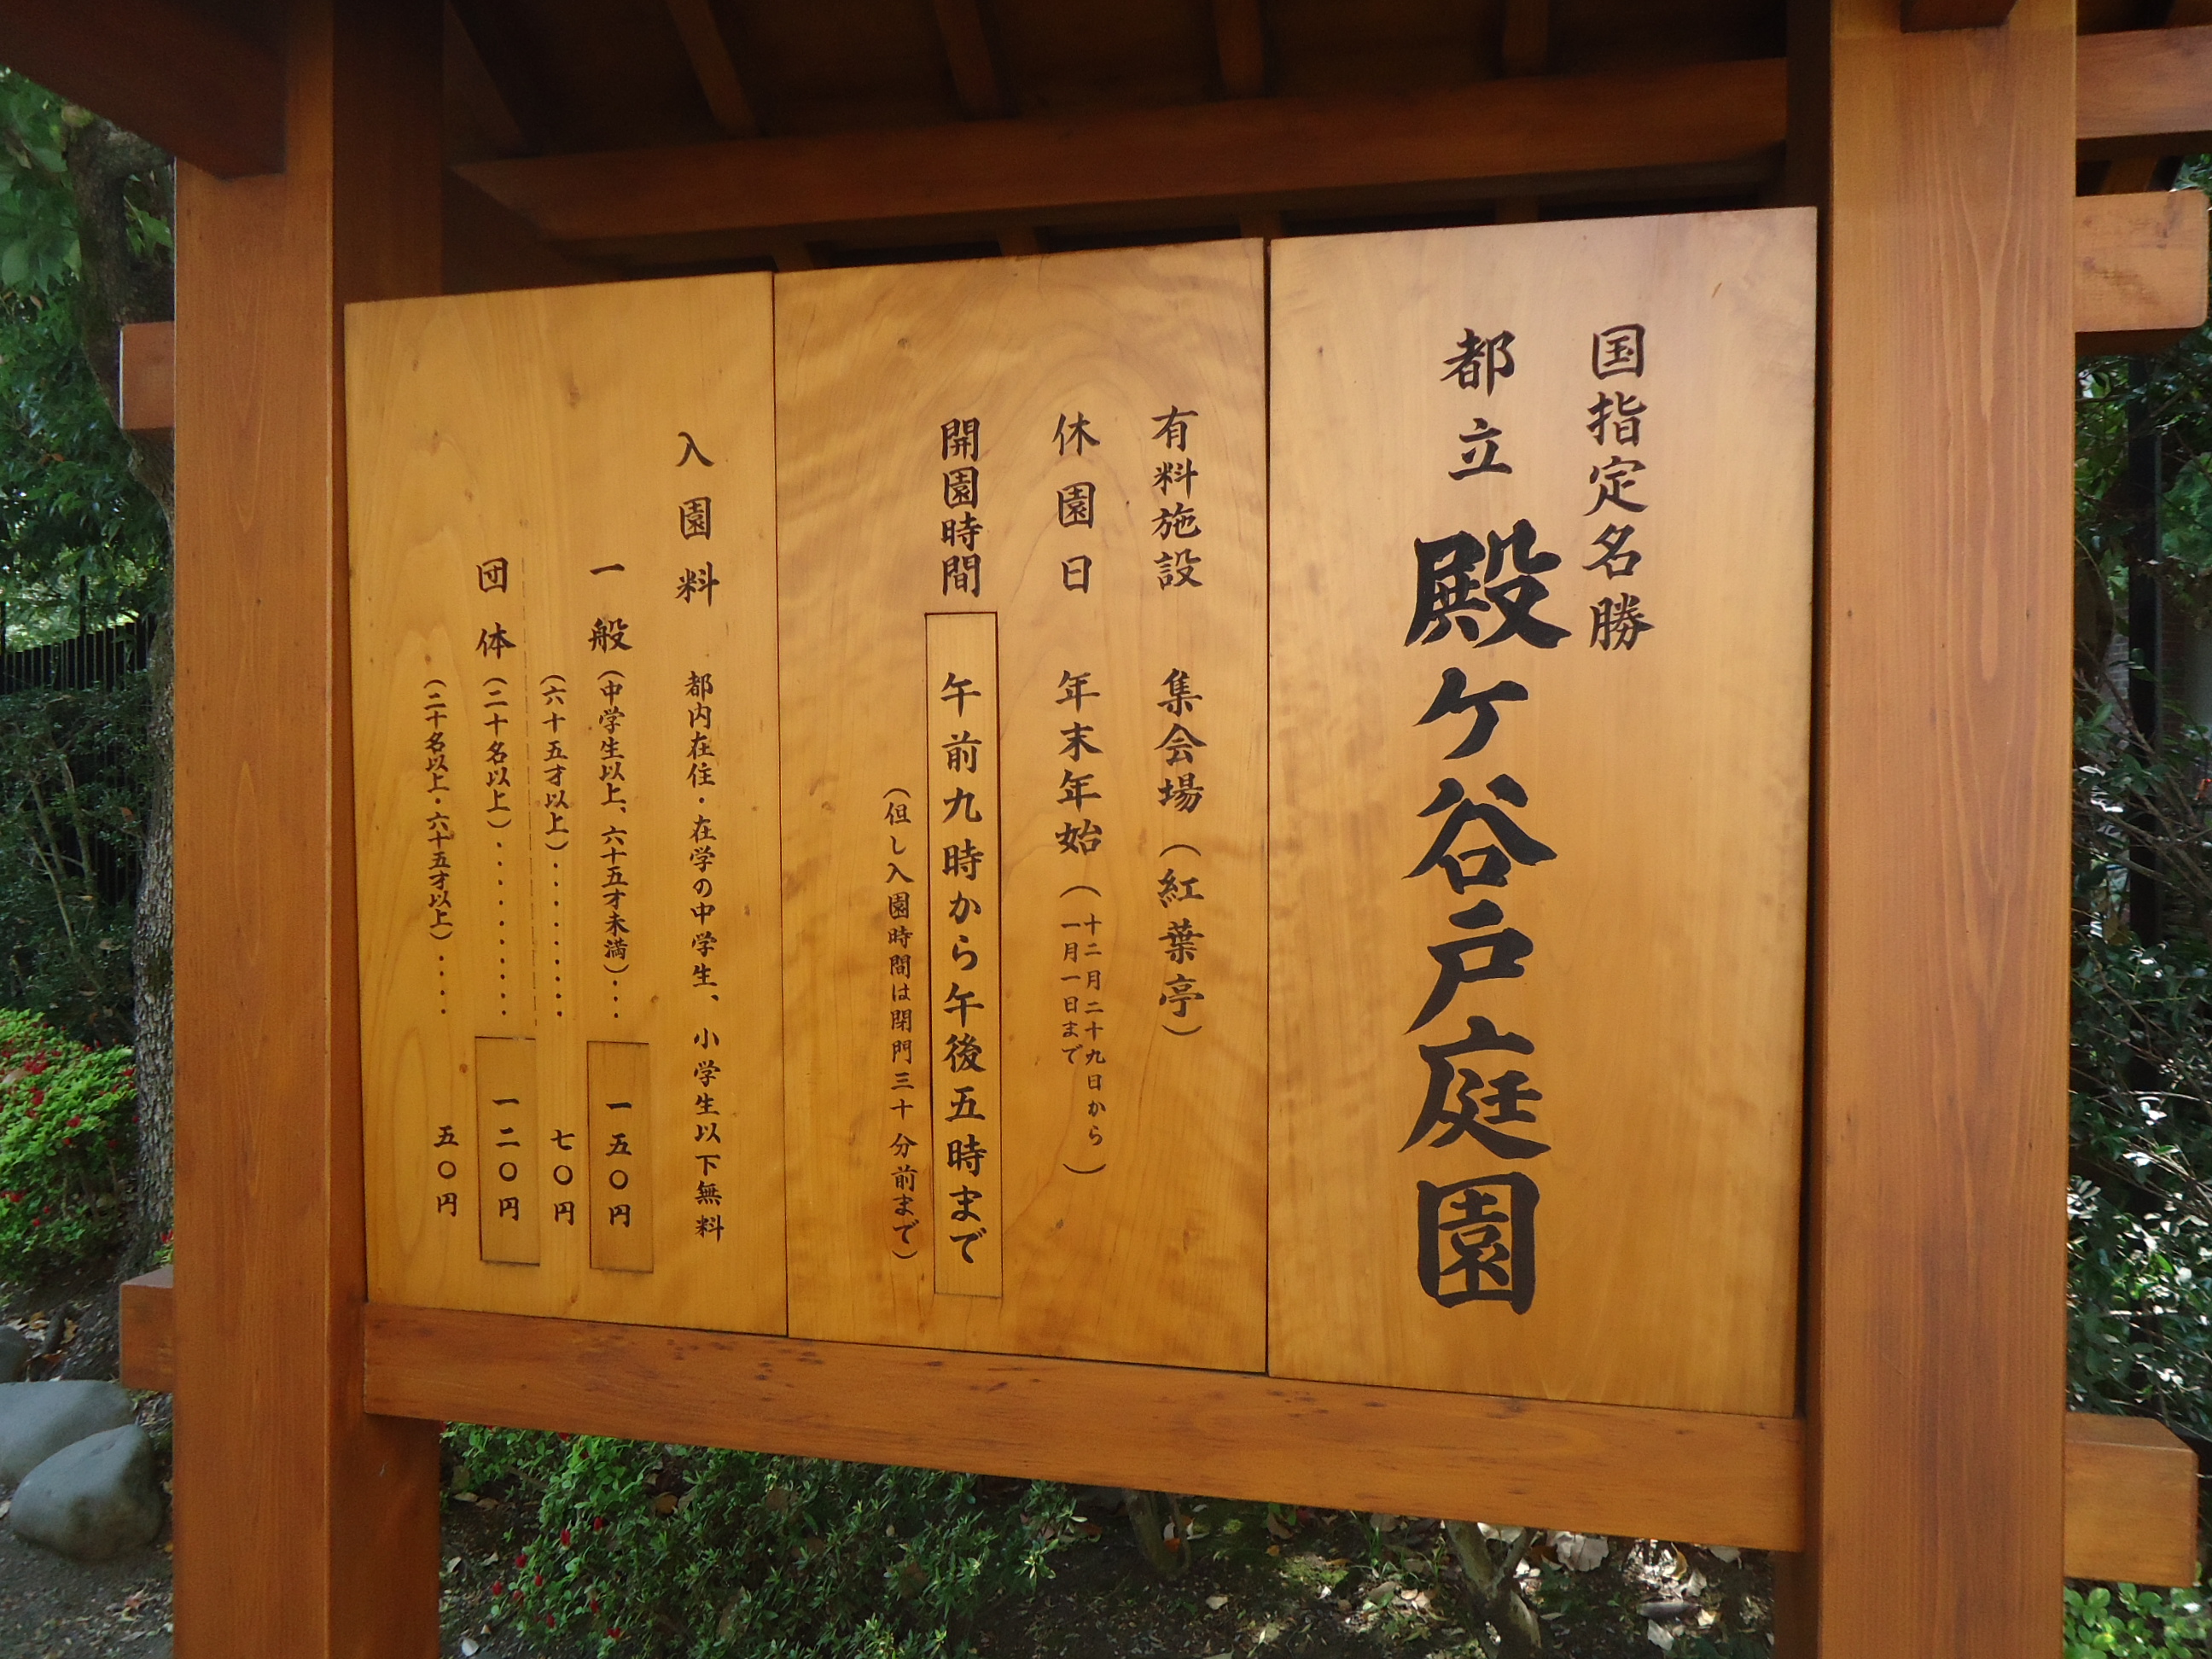 国指定名勝
都立 殿ヶ谷戸庭園
有料施設 集会場（紅葉亭）
休園日 年末年始（十二月二十九日から
一月一日まで）
開園時間 午前九時から午後五時まで
（但し入園時間は閉門三十分前まで）
入園料 都内在住・在学の中学生、小学生以下無料
一般（中学生以上、六十五才未満）・・・ 一五〇円
（六十五才以上）・・・・・・・・ 七〇円
団体（二十名以上）・・・・・・・・・ 一二〇円
（二十名以上・六十五才以上）・・・・ 五〇円